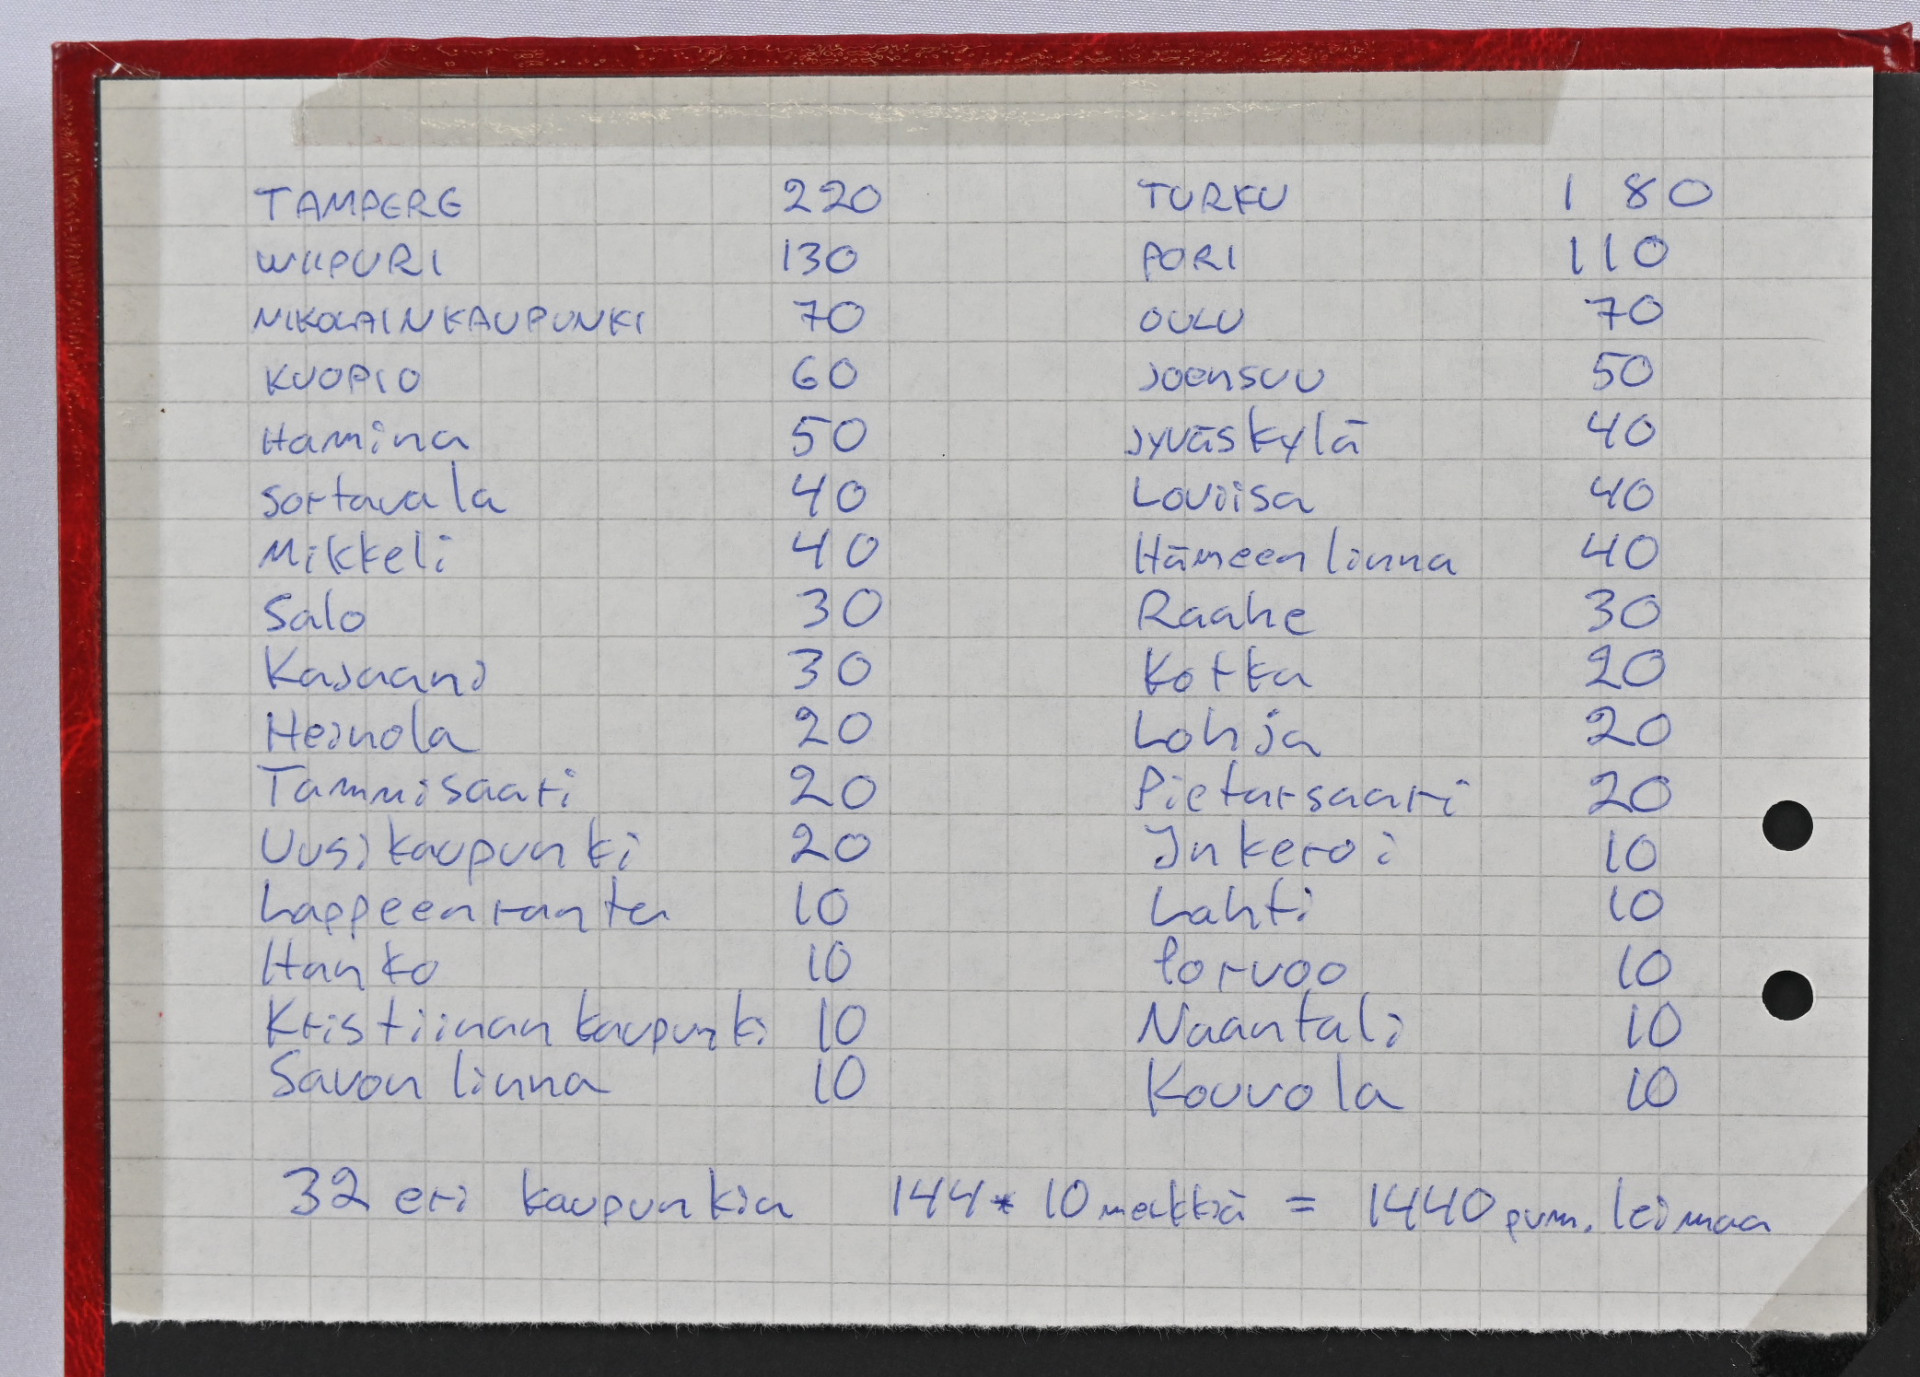 TAMPERE 220 TURKU 180
WIIPURI 130 PORI 110
NIKOLAINKAUPUNKI 70 OULU 70
KUOPIO 60 JOENSUU 50
Hamina 50 Jyväskylä 40
Sortavala 40 Loviisa 40
Mikkeli 40 Hämeenlinna 40
Salo 30 Raahe 30
Kajaani 30 Kotka 20
Heinola 20 Lohja 20
Tammisaari 20 Pietarsaari 20
Uusikaupunki 20 Inkeroi 10
Lappeenranta 10 Lahti 10
Hanko 10 Porvoo 10
Kristiinankaupunki 10 Naantali 10
Savonlinna 10 Kouvola 10
32 eri kaupunkia 144 * 10 merkkiä = 1440 pum. leimaa